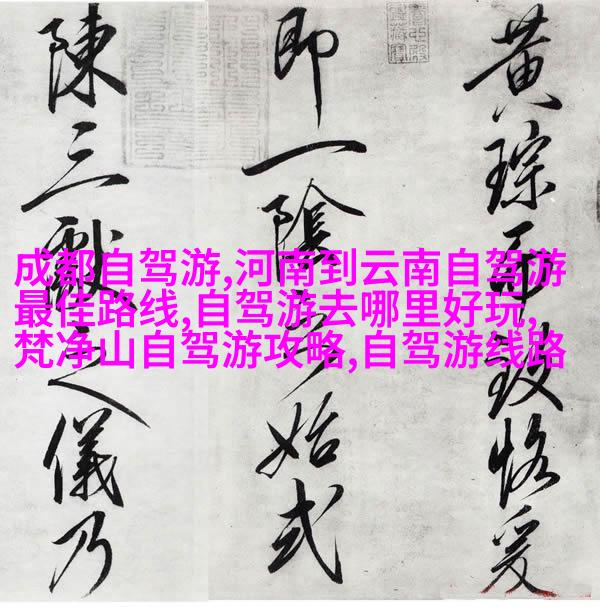 黄琮下投恪爰
即一陰之始式
陳三獻之儀乃
成都自驾游,河南到云南自驾游
最佳路线,自驾游去哪里好玩,
梵净山自驾游攻略,自驾游线路